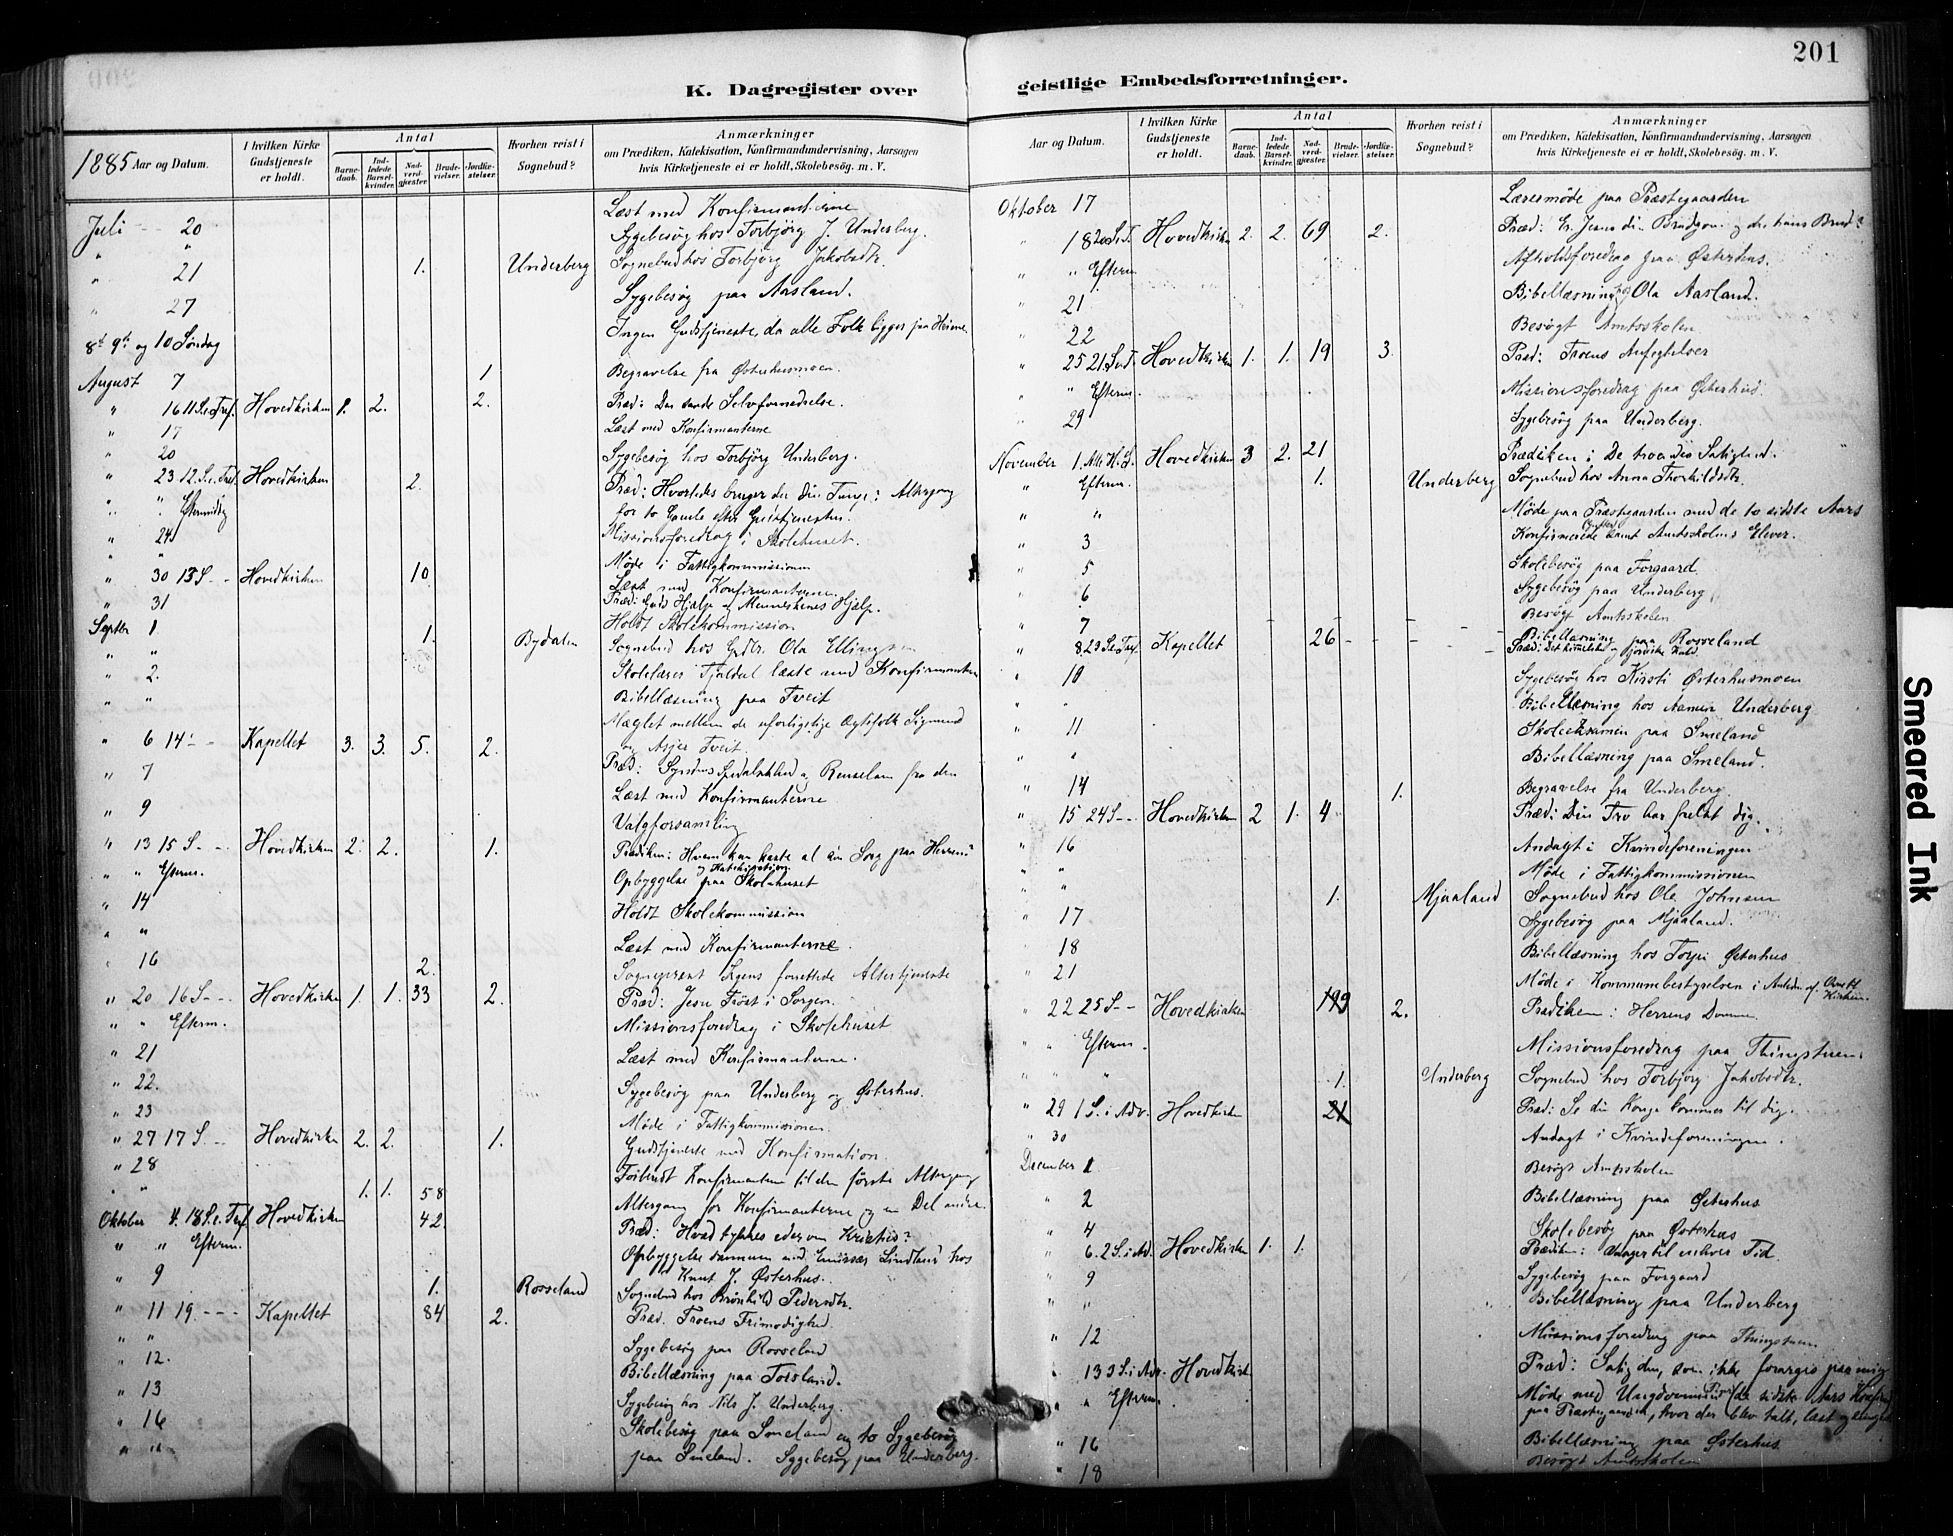 201
K. Dagregister over
geistlige Embedsforretninger.
1885 Aar og Datum.
I hvilken Kirke Gudstjeneste er holdt.
Antal
Barnedaab.
Indledede Barselkvinder.
Nadverdgjester
Brudevielser.
Jordfæstelser.
Hvorhen reist i Sognebud?
Anmærkninger
om Prædiken, Katekisation, Konfirmandundervisning, Aarsagen
hvis Kirketjeneste ei er holdt, Skolebesøg. m. V.
Juli 20 Læst med Konfirmanterne
" " Sygebesøg hos Torbjörg J. Underberg.
" 21 1. Underberg Sognebud hos Torbjörg Jakobsdtr.
" 27 Sygebesøg paa Aasland.
8de 9de og 10 Søndag Ingen Gudstjeneste, da alle Folk ligger paa Heiene
August 7 1 Begravelse fra Østerhusmoen.
" 16 11 S.e.Tref. Hovedkirken 1. 2. 2. Præd: Den sande Selvfornedrelse.
" 17 Læst med Konfirmanterne
" 20 Sygebesøg hos Torbjörg Underberg.
" 23 12. S.e.Tref. Hovedkirken 2. Præd: Hvorledes bruger du din Tunge? Altergang
" " Eftermiddag for to Gamle efter Gudstjenesten.
" 24 Missionsforedrag i Skolehuset.
" " Møde i Fattigkommissionen
" 30 13 S Hovedkirken 10 Læst med Konfirmanterne.
" 31 Præd: Guds Hjælp og Menneskenes Hjælp.
Septbr 1. Holdt Skolekommission
" " 1. Bydalen Sognebud hos Ola Ellingsen
" 2. Skolelærer Tjaldal læste med Konfirmanter
" " Bibellæsning paa Tveit
Mæglet mellem de uforligelige Ægtefolk Sigmund
" 6 14 Kapellet 3. 3. 5. 2. og Asjer Tveit.
" 7 Præd: Syndens Spedalskhed og Renselsen fra den
" 9 Læst med Konfirmanterne
Valgforsamling
" 13 15 S Hovedkirken 2. 2. 1. Prædiken: Hvem kan kaste al din Sorg paa Herren?
" " Efterm. Opbyggelse og Katekisation paa Skolehuset
" 14 Holdt Skolekommission
" " Læst med Konfirmanterne.
" 16 2. Sogneprest forrettede Altertjeneste
" 20 16 S Hovedkirken 1. 1. 33 2. Præd: Jesu Trøst i Sorgen.
" " Efterm. Missionsforedrag i Skolehuset
" 21 Læst med Konfirmanterne.
" 22. Sygebesøg paa Underberg og Østerhus.
" 23 Møde i Fattigkommissionen.
" 27 17 S. Hovedkirken 2. 2. 1. Gudstjeneste med Konfirmation.
" 28 Forberedt Konfirmanterne til den første Altergang
" " 1. 1. 58 Altergang for Konfirmanterne og en Del andre.
Oktober 4. 18 S.e.Tref. Hovedkirken 42 Præd: Hvad tykkes eder om Kristus?
" " Efterm. Opbyggelse sammen med Emissær Lindland hos
" 9 1. Rosseland Knut J. Østerhus.
Sognebud hos Brønhild Pedersdtr.
" 11 19. Kapellet 84 2. Præd. Troens Frimodighed.
" " Sygebesøg paa Rosseland
" 12. Bibellæsning paa Torsland.
" 13 Sygebesøg hos Nils J. Underberg.
" 16 Skolebesøg paa Smeland og to Sygebesøg
" " paa Smeland. Sygebesøg paa Underberg.
Aar og Datum.
I hvilken Kirke Gudstjeneste er holdt.
Antal
Barnedaab.
Indledede Barselkvinder.
Nadverdgjester
Brudevielser.
Jordfæstelser.
Hvorhen reist i Sognebud?
Anmærkninger
om Prædiken, Katekisation, Konfirmandundervisning, Aarsagen
hvis Kirketjeneste ei er holdt, Skolebesøg. m. V.
Oktober 17 Læremøde paa Præstegaarden
" 18 20 S.e.T. Hovedkirken 2. 2. 69 2. Præd: Er Jesus din Brudgom og du hans Brud?
" " Efterm Afholdsforedrag paa Østerhus.
" 21 Bibellæsning hos Ola Aasland.
" 22 Besøgt Amtsskolen
" 25 21. S.e.T. Hovedkirken 1. 1. 19 3. Præd: Troens Anfegtelser
" " Efterm. Missionsforedrag paa Østerhus.
" 29 Sygebesøg paa Underberg.
November 1. Alle H. S. Hovedkirken 3 2. 21 Prædiken: De troendes Salighed.
" Efterm. 1. Underberg Sognebud hos Anna Thorkildsdtr.
" " Møde paa Præstegaarden med de to sidste Aars
" 3 Konfirmerede samt Amtsskolens Elever.
" 5 Skolebesøg paa Forgaard
" 6 Sygebesøg paa Underberg
" 7 Besøgt Amtsskolen
" 8 23 S.e.Tref. Kapellet 26 Bibellæsning paa Rosseland
Præd: Det himmelske og jordiske Kald
" 10 Sygebesøg hos Kirsti Østerhusmoen
" " Bibellæsning hos Underberg
" 11 Skoleeksamen paa Smeland
" " Bibellæsning paa Smeland.
" 14 1. Begravelse fra Underberg.
" 15 24 S Hovedkirken 2 1. 4 Præd: Din Tro har frelst dig.
" 16 Andagt i Kvindeforeningen
" " Møde i Fattigkommissionen
" " 1. Mjaaland Sognebud hos Ole Johnsen
" 17 Sygebesøg paa Mjaaland.
" 18 Bibellæsning hos Torjei Østerhus
" 21 Møde i Kommunebestyrelsen i Anledn. af Ovn til Kirken.
" 22 25 S Hovedkirken 2. Prædiken: Herrens Domme
" " Efterm. Missionsforedrag paa Thingstuen.
" " 1. Underberg Sognebud hos Torbjörg Jakobsdtr.
" 29 1 S. i Adv. Hovedkirken 21 Præd: Se din Konge kommer til dig.
" 30 Andagt i Kvindeforeningen.
December 1 Besøgt Amtsskolen
" 2 Bibellæsning paa Østerhus
" 4 Skolebesøg paa Østerhus
" 6. 2 S. i Adv. Hovedkirken 1. 1. Prædiken: Vaager til enhver Tid
" 9 Sygebesøg paa Forgaard
" " Bibellæsning paa Underberg
" 12 Missionsforedrag paa Thingstuen
" 13 3 S. i Adv. Hovedkirk Præd: Salig den, som ikke forarges paa mig
" " Efterm. Møde med Ungdommen (de sidste Aars Konfirm
paa Præstegaarden, hvor der blev talt, læst og
" 16 Bibellæsning paa Østerhus
" 18 Besøgt Amtsskolen
Smeared Ink